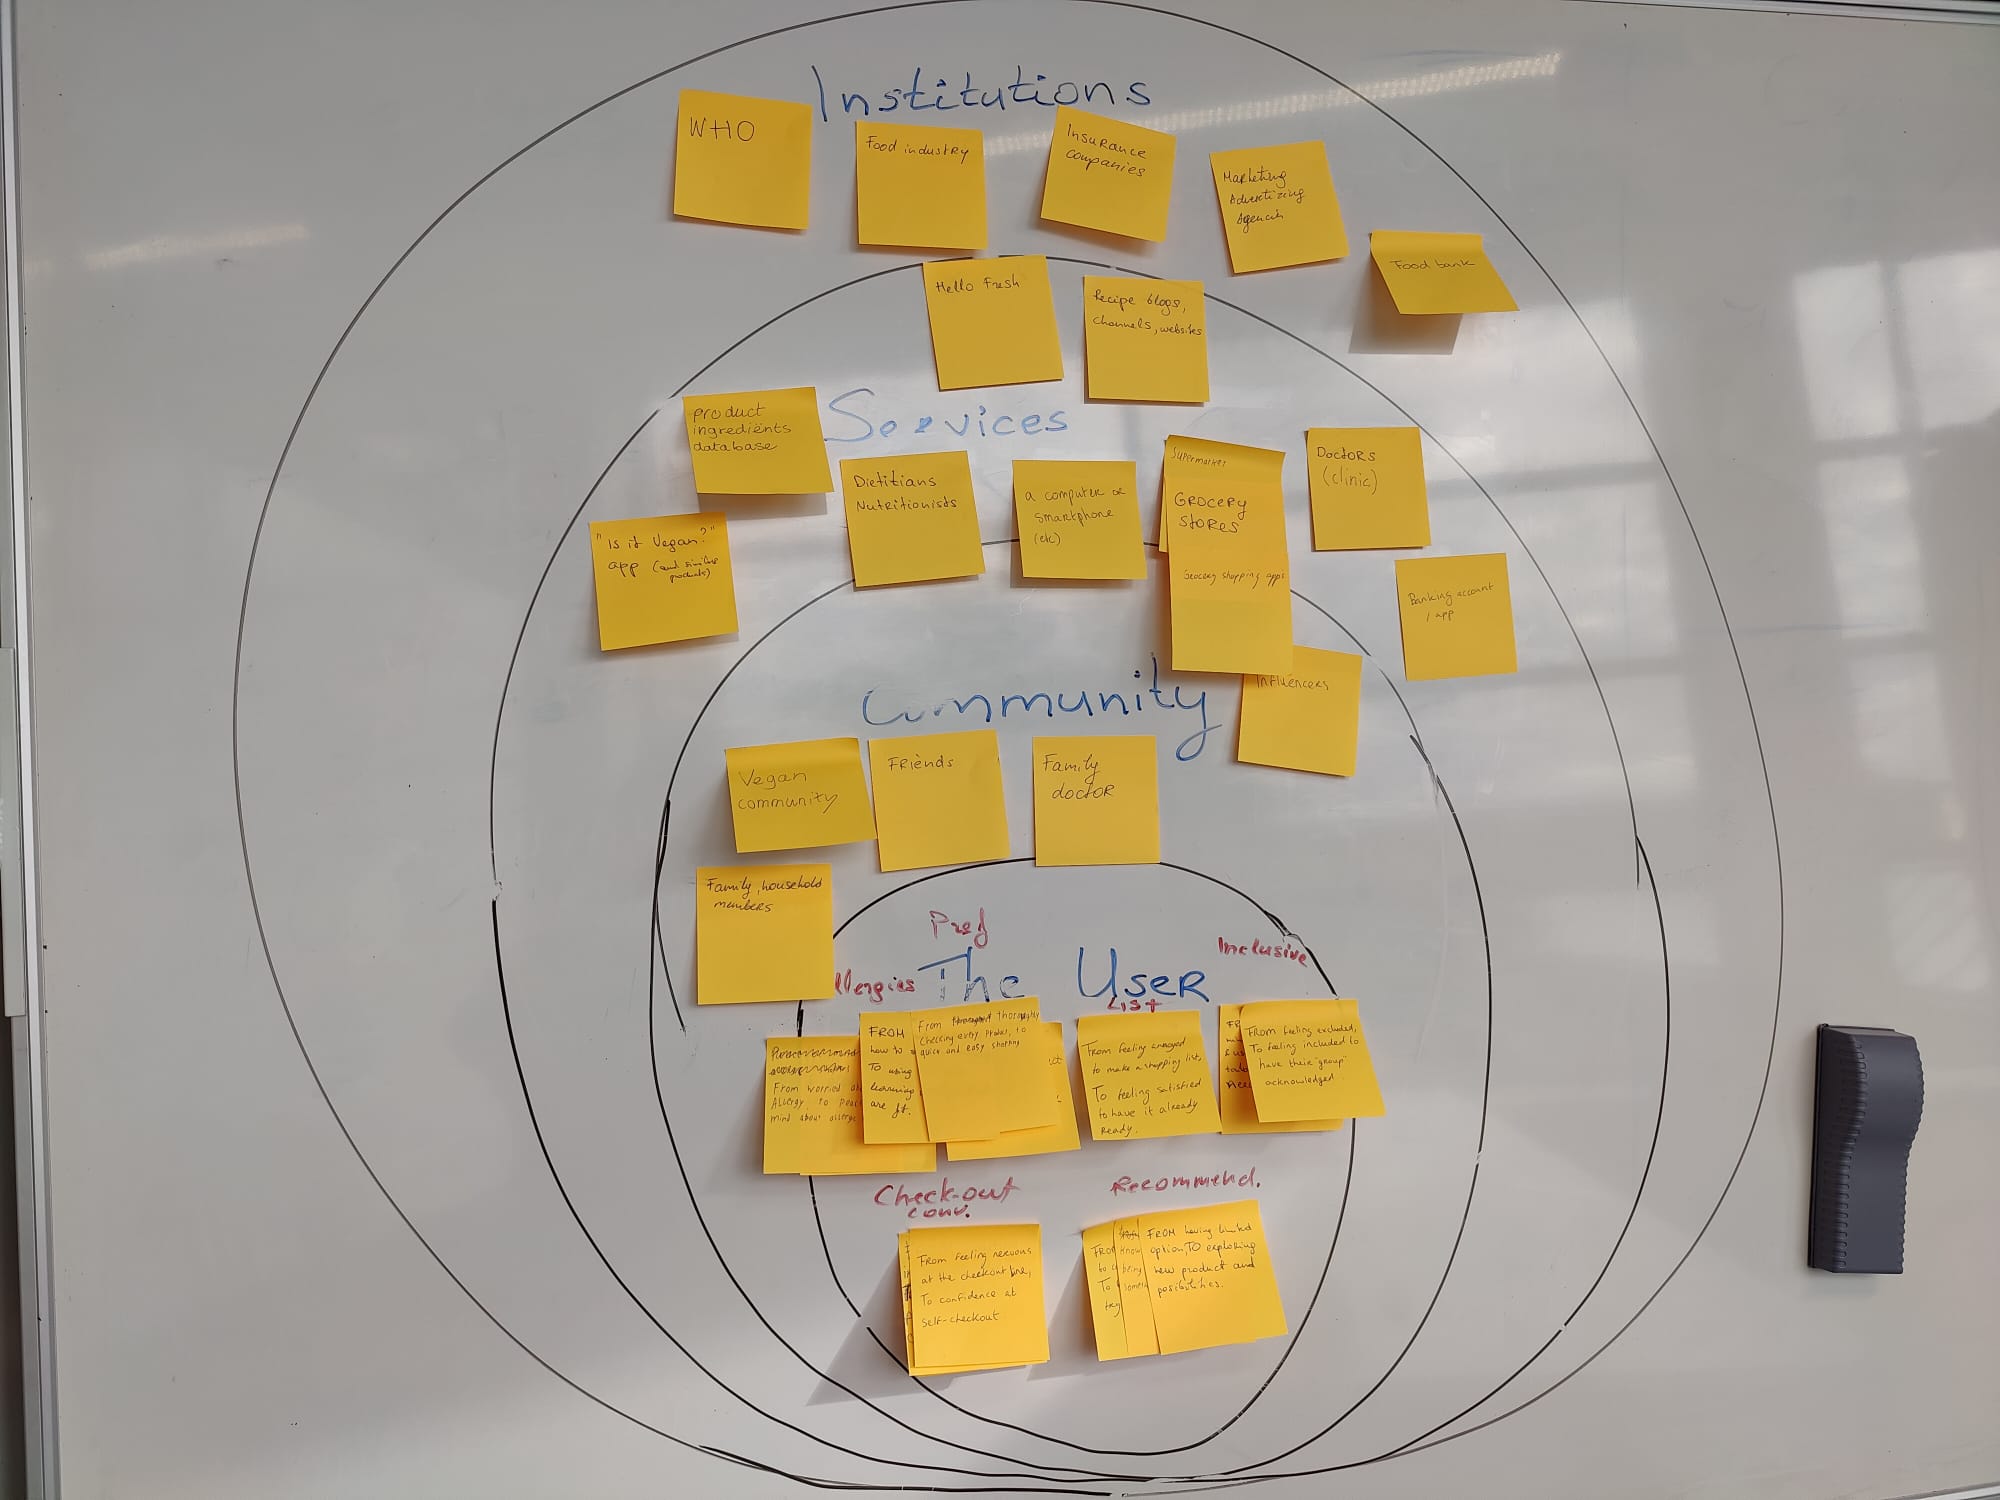 Institutions
WHO
Food industry
Insurance
companies
Marketing
Advertizing
Agencies
Food bank
Hello Fresh
Recipe blogs,
channels, websites
Services
product
ingrediënts
database
"Is it Vegan?"
app (and similar
products)
Dietitians
Nutritionists
a computer or
smartphone
(etc)
Supermarket
Grocery
stores
Grocery shopping apps
Doctors
(clinic)
Banking account
/ app
Influencers
Community
Vegan
community
Friends
Family
doctor
Family, household
members
Pref
The User
Inclusive
llergies
List
From worried
Allergy, to
mind about
FROM
how to
TO using
learning
are ft.
From thoroughly
checking every product, to
quick and easy shopping
From feeling annoyed
to make a shopping list,
To feeling satisfied
to have it already
ready.
From feeling excluded,
To feeling included to
have their 'group'
acknowledged
Check-out
conv.
Recommend.
From feeling nervous
at the checkout line,
To confidence at
self-checkout
FROM having limited
option, TO exploring
new product and
posibilities.